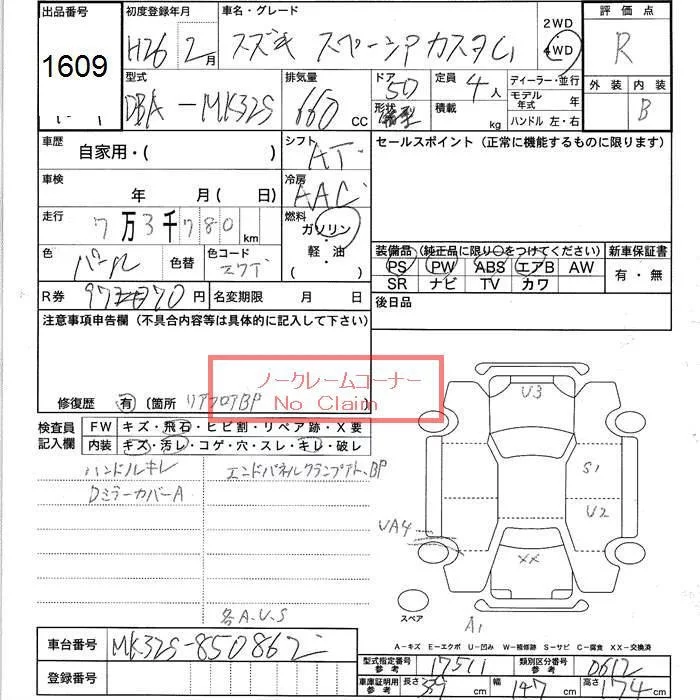 出品番号 初度登録年月 車名・グレード 2WD 評価点
1609 H26 2月 スズキ スペーシアカスタム 4WD R
型式 排気量 ドア 5D 定員 4人 ディーラー・並行 外装 内装
DBA-MK32S 660 CC 形状 箱型 積載 kg モデル年式 年 B
ハンドル 左・右
車歴 自家用・( ) シフト AT セールスポイント (正常に機能するものに限ります)
車検 年 月( 日) 冷房 AAC
走行 7万3千780km 燃料 ガソリン
色 パール 色替 色コード ZVT 軽・油
( )
装備品 (純正品に限り○をつけてください) 新車保証書
PS PW ABS エアB AW 有・無
SR ナビ TV カワ
R券 円 名変期限 月 日 後日品
注意事項申告欄 (不具合内容等は具体的に記入して下さい)
ノークレームコーナー
No Claim
修復歴 有 (箇所 リアフロアBP
検査員記入欄 FW キズ・飛石・ヒビ割・リペア跡・X要
内装 キズ・汚レ・コゲ・穴・スレ・キレ・破レ
ハンドルキレ エンドパネルクランプアト、BP
DミラーカバーA
各A.U.S
U3
S1
U2
UA4
XX
A1
スペア
A-キズ E-エクボ U-凹み W-補修跡 S-サビ C-腐食 XX-交換済
車台番号 MK32S-850862
登録番号
型式指定番号 参考 17511 類別区分番号 参考 0612
車庫証明用 参考 長さ 339 cm 幅 147 cm 高さ 174 cm